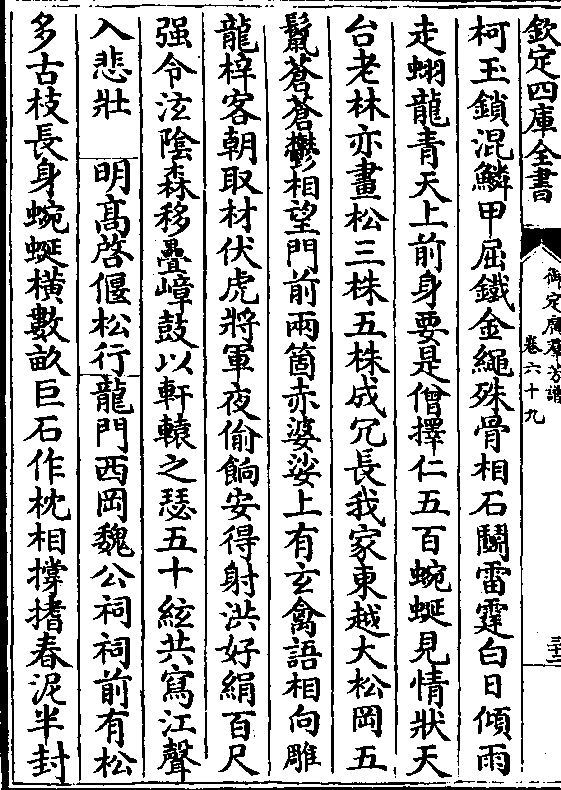 欽定四庫全書
御定廣羣芳譜
卷六十九
三十二
柯玉鎖混鱗甲屈鐵金繩殊骨相石鬬雷霆白日傾雨
走蝴龍青天上前身要是僧擇仁五百蜿蜒見情狀天
台老林亦畫松三株五株成冗長我家東越大松岡五
鬛蒼蒼鬱相望門前兩箇赤婆娑上有玄禽語相向雕
龍梓客朝取材伏虎將軍夜偷餉安得射洪好絹百尺
强令泫陰森移疊嶂鼓以軒轅之瑟五十絃共寫江聲
入悲壯　明高啓偃松行龍門西岡魏公祠祠前有松
多古枝長身蜿蜒横數畝巨石作枕相撐搘春泥半封